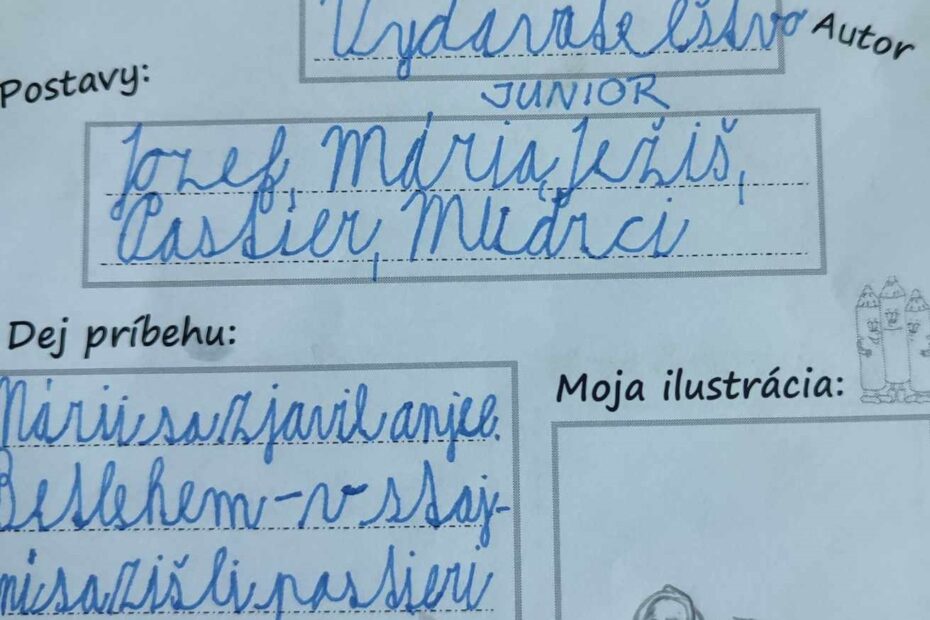 Vydavateľstvo Autor
Postavy:
JUNIOR
Jozef, Mária, Ježiš,
Pastier, Mudrci
Dej príbehu:
Márii sa zjavil anjel.
Moja ilustrácia:
Betlehem – v staj-
ni sa zišli pastieri